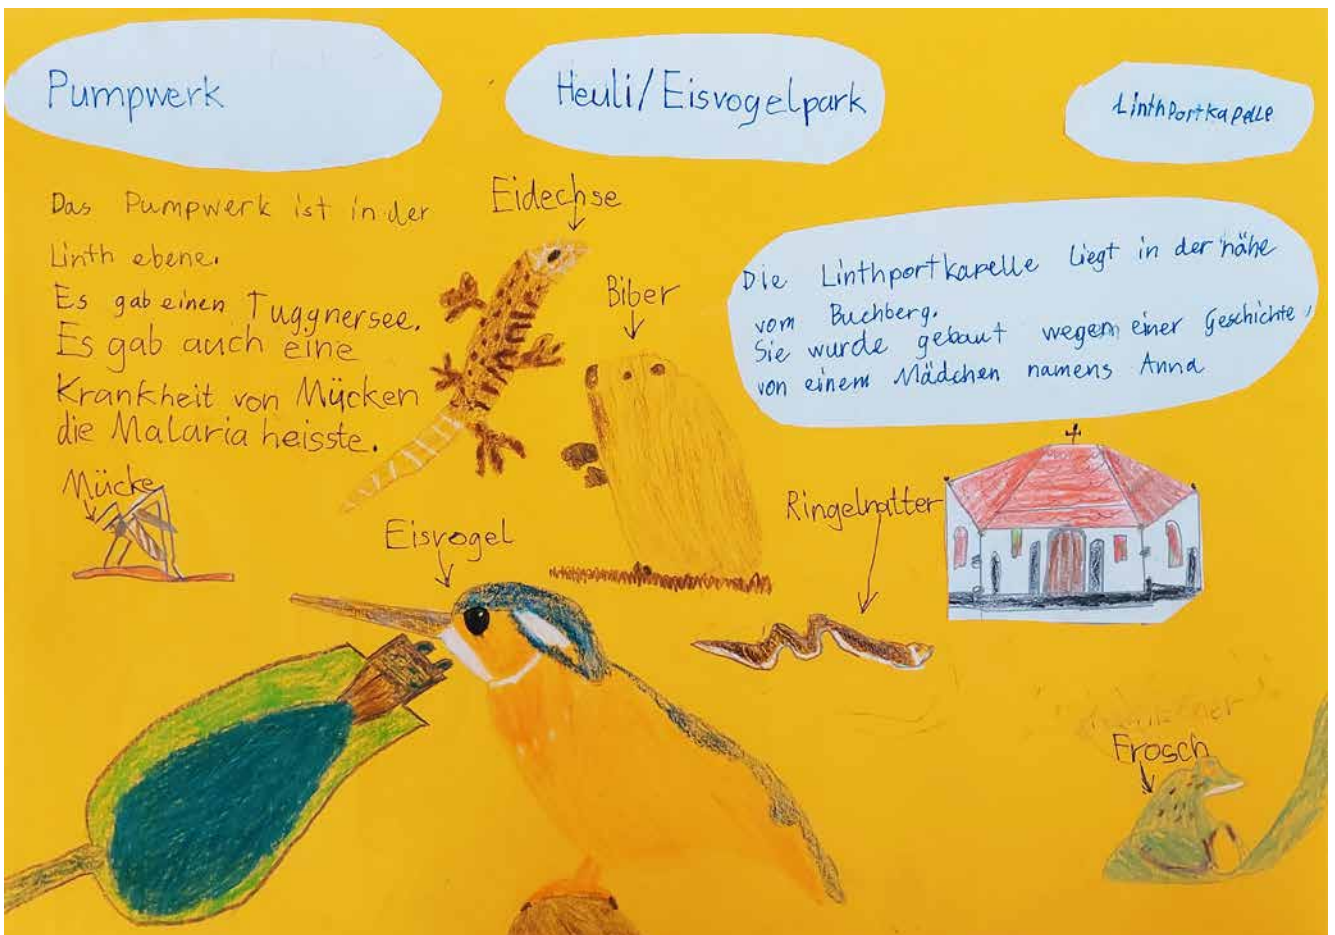 Pumpwerk
Heuli/Eisvogelpark
Linthportkapelle
Das Pumpwerk ist in der
Linth ebene.
Es gab einen Tuggnersee.
Es gab auch eine
Krankheit von Mücken
die Malaria heisste.
Mücke
Eidechse
Biber
Die Linthportkapelle liegt in der nähe
vom Buchberg.
Sie wurde gebaut wegem einer Geschichte,
von einem Mädchen namens Anna
Ringelnatter
Eisvogel
Frosch